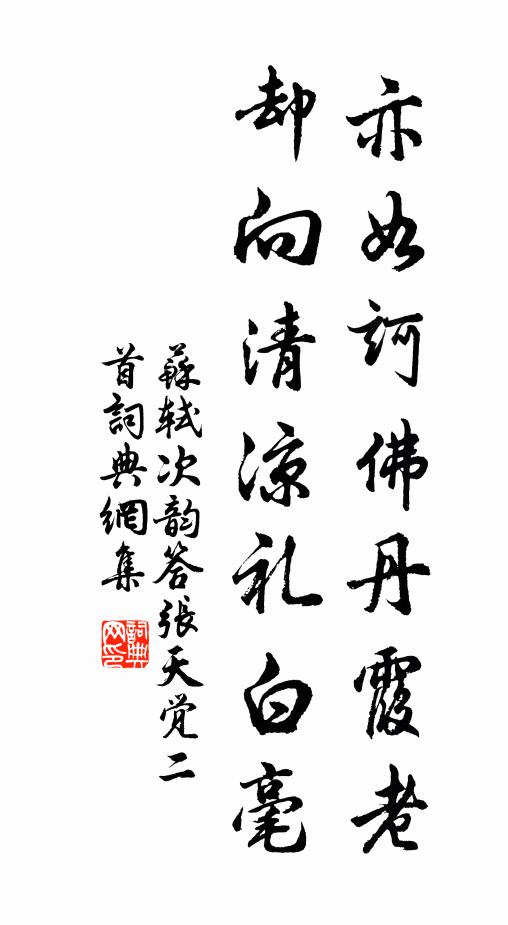 亦如訶佛丹霞老
却向清凉礼白毫
蘇轼次韵答張天觉二
首詞典網集
詞典
网印